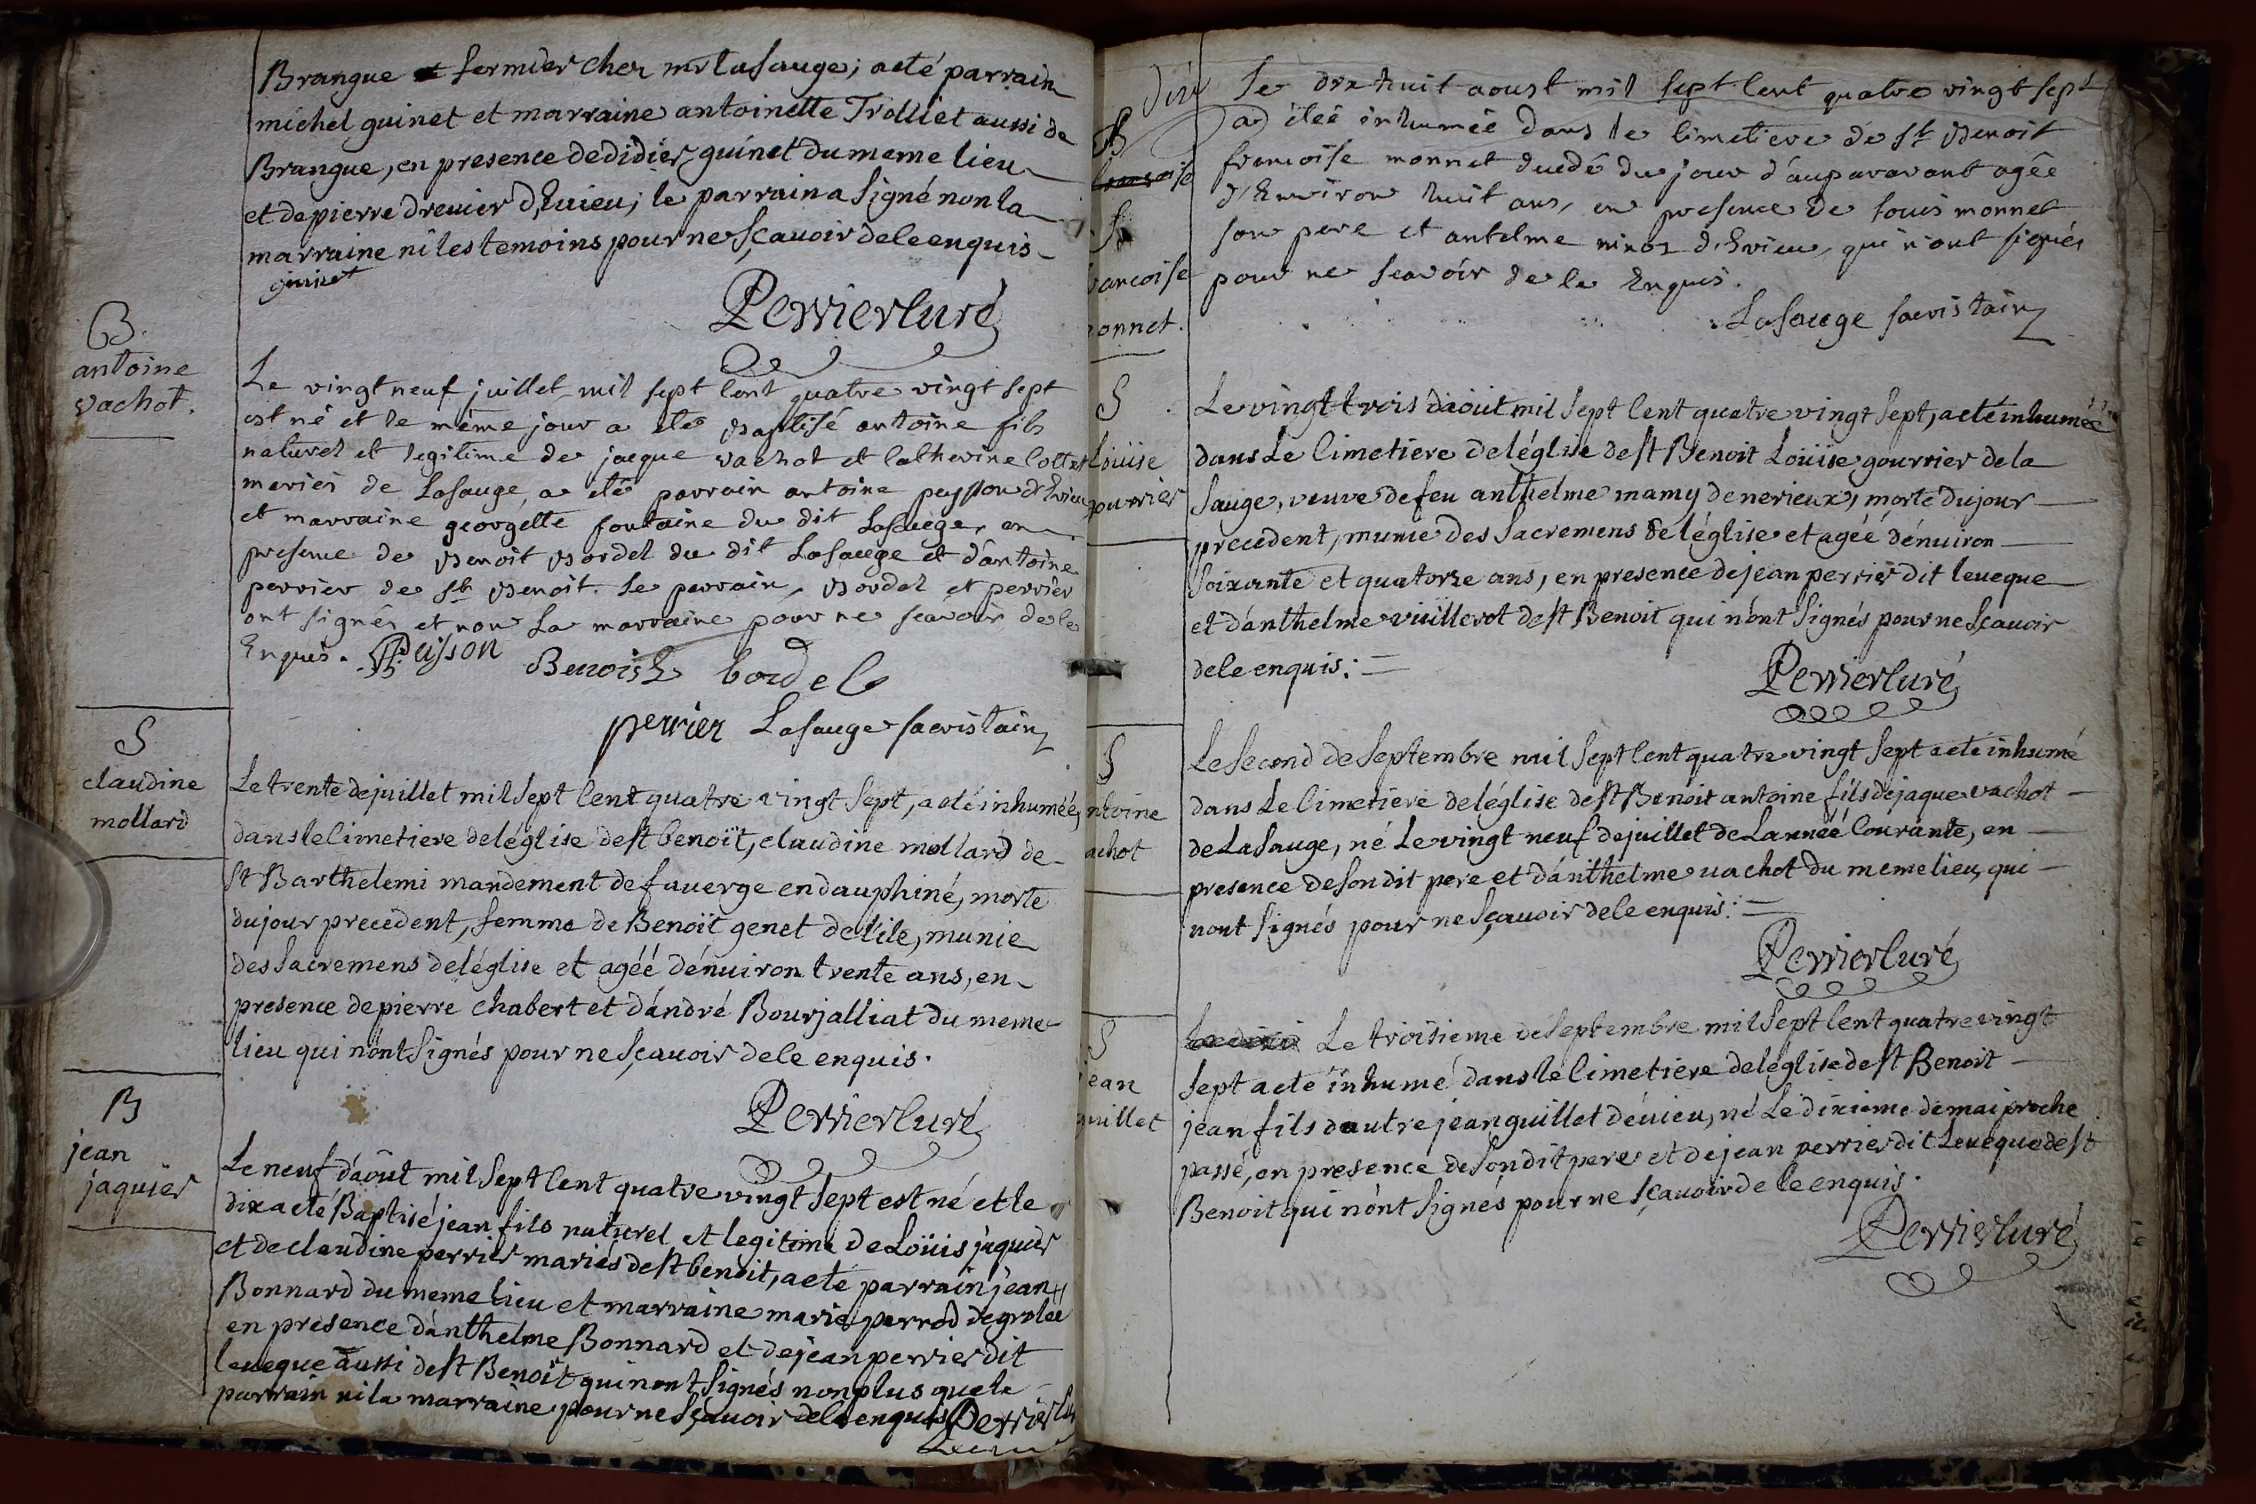 Brangue et fermier chez mr lasauge; a été parrain
michel guinet et marraine antoinette Trolliet aussi de
Brangue, en presence de didier guinet du meme lieu
et de pierre drevier d'Evieu; le parrain a signé non la
marraine ni les temoins pour ne sçavoir de le enquis
guinet
Perrier Curé
B.
antoine
vachot.
Le vingt neuf juillet mil sept cent quatre vingt sept
est né et le même jour a été Baptisé antoine fils
naturel et legitime de jaque vachot et Catherine Cottet
mariés de Lasauge, a été parrain antoine peysson d'Evieu
et marraine georgette fontaine du dit Lasauge, en
presence de Benoit Bordel du dit Lasauge et d'antoine
perrier de St Benoit. Le parrain, Bordel et perrier
ont signés et non la marraine pour ne scavoir de le
Enquis. Peisson
Benoist bordel
perrier Lasauge sacristain
S
claudine
mollard
Le trente de juillet mil sept Cent quatre vingt sept, a eté inhumée
dans le Cimetiere de léglise de st benoit, claudine mollard de
st Barthelemi mandement de faverge en dauphiné, morte
du jour precedent, femme de Benoit genet de l'ile, munie
des sacremens de léglise et agéé dénviron trente ans, en
presence de pierre Chabert et dándré Bourjalliat du meme
lieu qui nónt signés pour ne sçavoir de le enquis.
Perrier Curé
B
jean
jaquier
Le neuf d'aôut mil sept Cent quatre vingt sept est né et le
dix a eté Baptisé jean fils naturel et legitime de Loüis jaquier
et de claudine perrier mariés de st benoit, a eté parrain jean
Bonnard du meme lieu et marraine marie perrod de grolée
en presence dánthelme Bonnard et de jean perrier dit
leveque aussi de st Benoit qui nont signés non plus que le
parrain ni la marraine pour ne sçavoir de le enquis Perrier
B
francoise
S
francoise
monnet.
Dix Le dix huit aoust mil sept Cent quatre vingt sept
a étéé inhumée dans le Cimetiere de St Benoit
francoise monnet decedé du jour d'auparavant agée
d'Environ huit ans, en presence de Louis monnet
son pere et antelme d'Evieu, qui n'ont signés
pour ne scavoir de le Enquis.
Lasauge sacristain
S
Loüise
gourrier
Le vingt trois d'aôut mil sept Cent quatre vingt sept, a eté inhumée
dans Le Cimetiere de léglise de st Benoit Loüise gourrier de la
sauge, veuve de feu anthelme mamy de nerieux, morte du jour
precedent, munie des sacremens de léglise et agéé dénviron
soixante et quatorze ans, en presence de jean perrier dit leveque
et dánthelme vuillerot de st Benoit qui nónt signés pour ne sçavoir
de le enquis.
Perrier Curé
S
antoine
vachot
Le second de septembre mil sept Cent quatre vingt sept a eté inhumé
dans Le Cimetiere de léglise de st Benoit antoine fils de jaque vachot
de Lasauge, né Le vingt neuf de juillet de Lannéé Courante, en
presence de son dit pere et dánthelme vachot du meme lieu, qui
nont signés pour ne sçavoir de le enquis.
Perrier Curé
S
jean
guillet
Le troisieme de septembre mil sept Cent quatre vingt
sept a eté inhumé dans le Cimetiere de léglise de st Benoit
jean fils dautre jean guillet dévieu, né Le dixieme de mai proche
passé, en presence de son dit pere et de jean perrier dit Leveque de st
Benoit qui nónt signés pour ne sçavoir de le enquis.
Perrier Curé